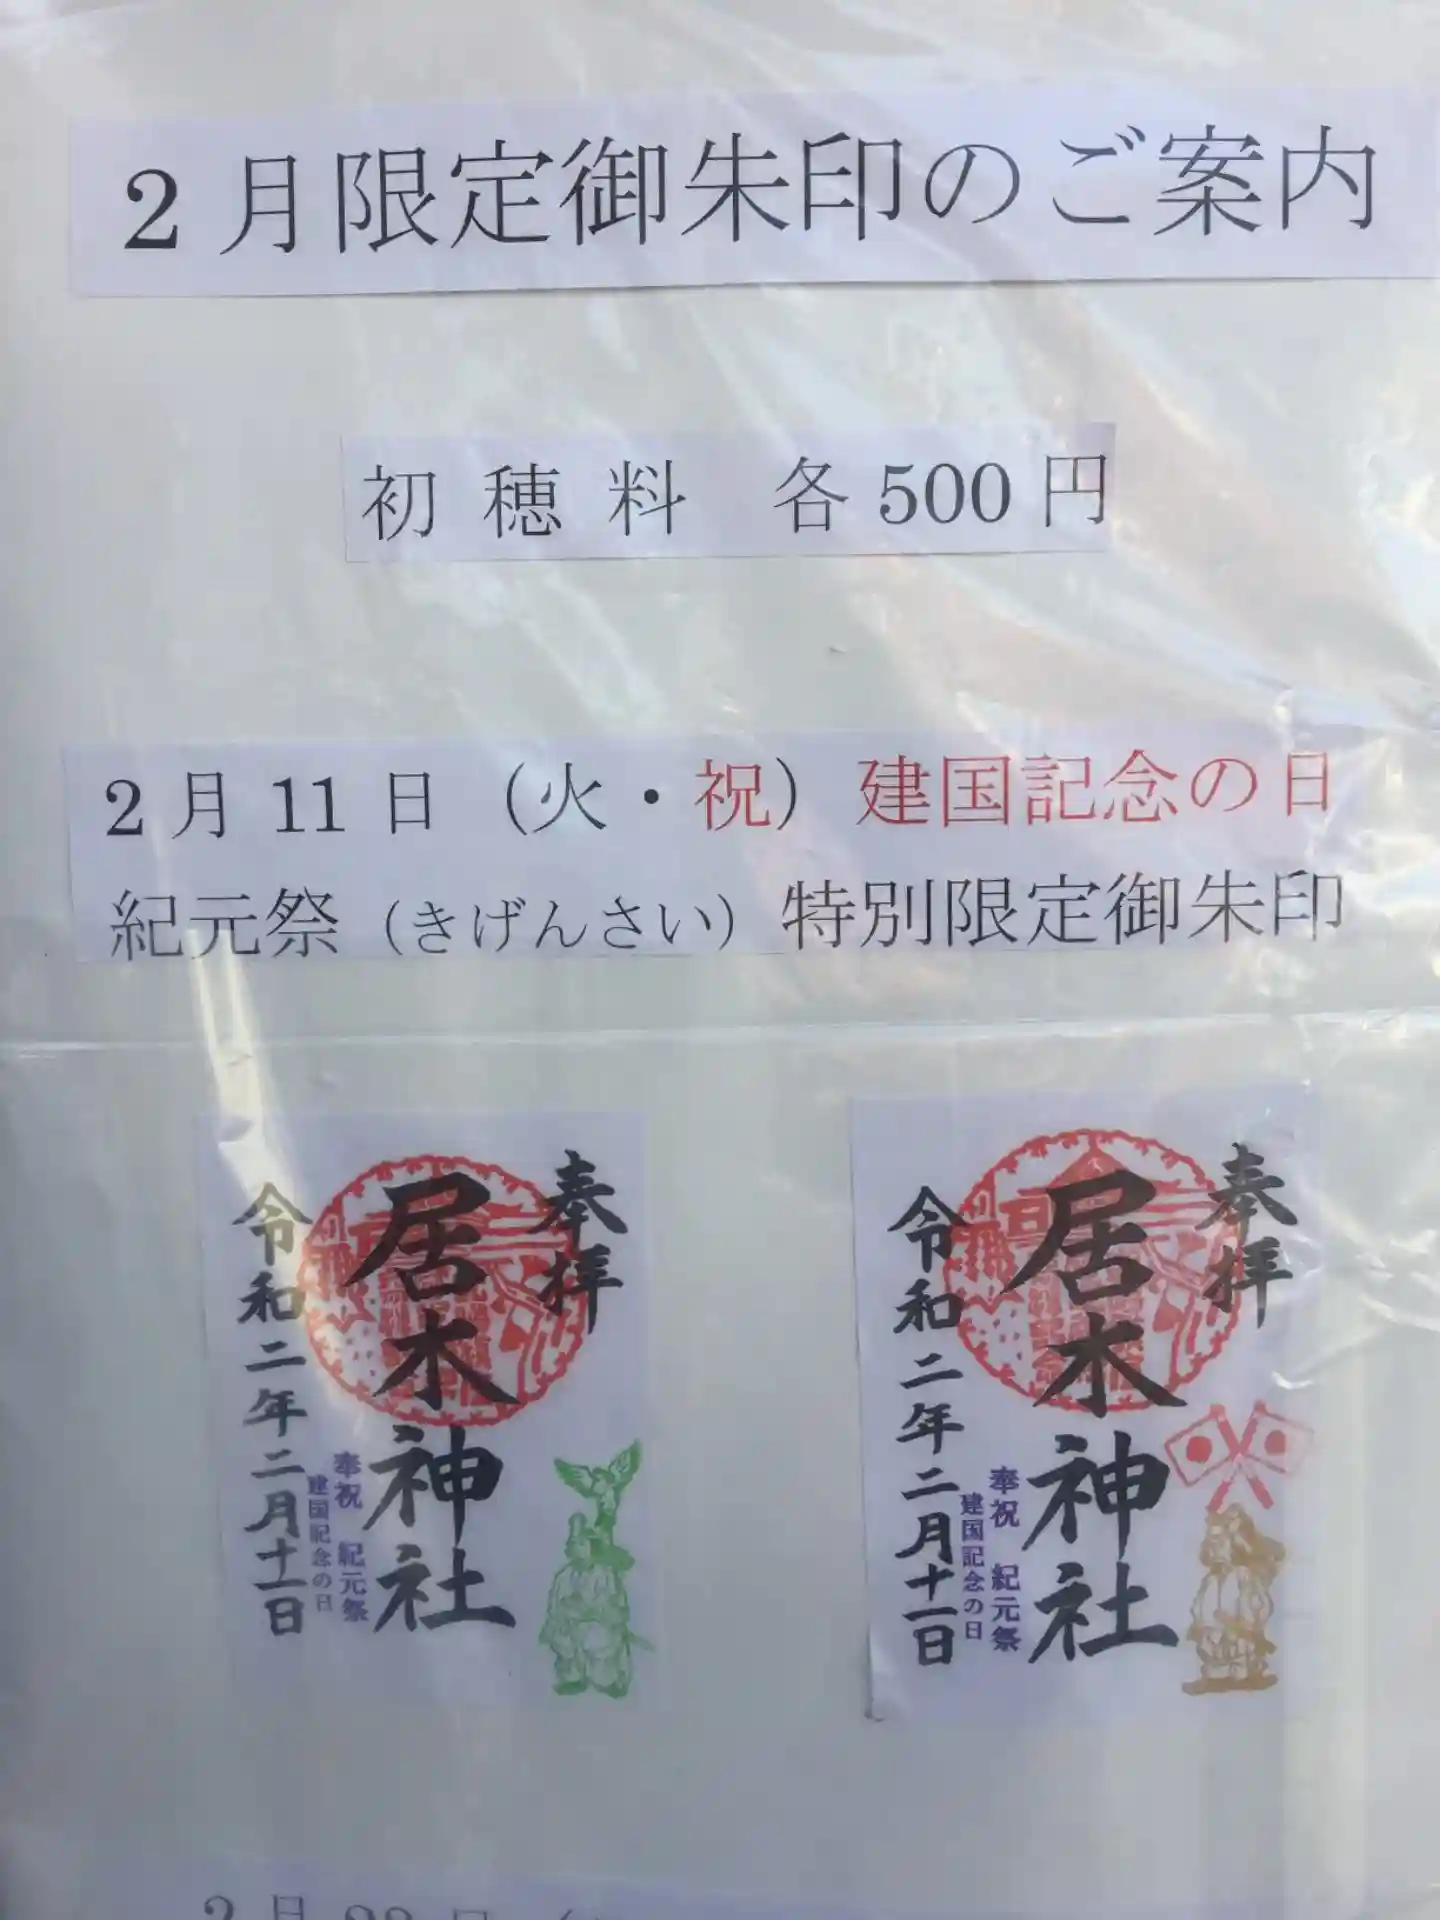 2月限定御朱印のご案内
初穂料 各500円
2月11日(火・祝)建国記念の日
紀元祭(きげんさい)特別限定御朱印
奉拝
居木神社
奉祝 紀元祭
建国記念の日
令和二年二月十一日
奉拝
居木神社
奉祝 紀元祭
建国記念の日
令和二年二月十一日
2月